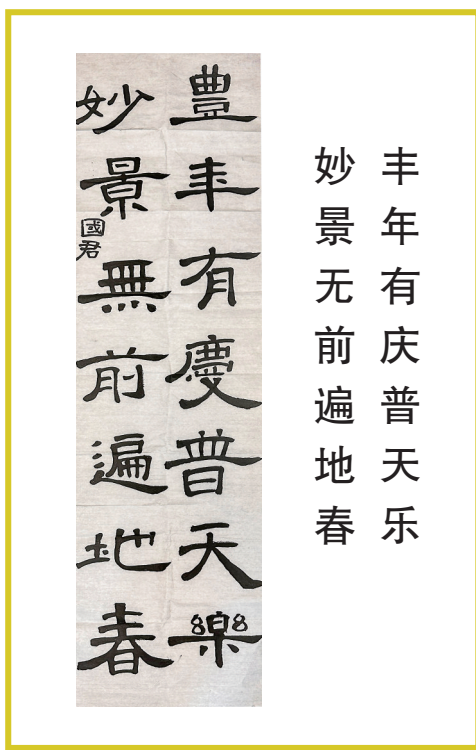 豊年有慶普天樂
妙景無前遍地春
國君
丰年有庆普天乐
妙景无前遍地春